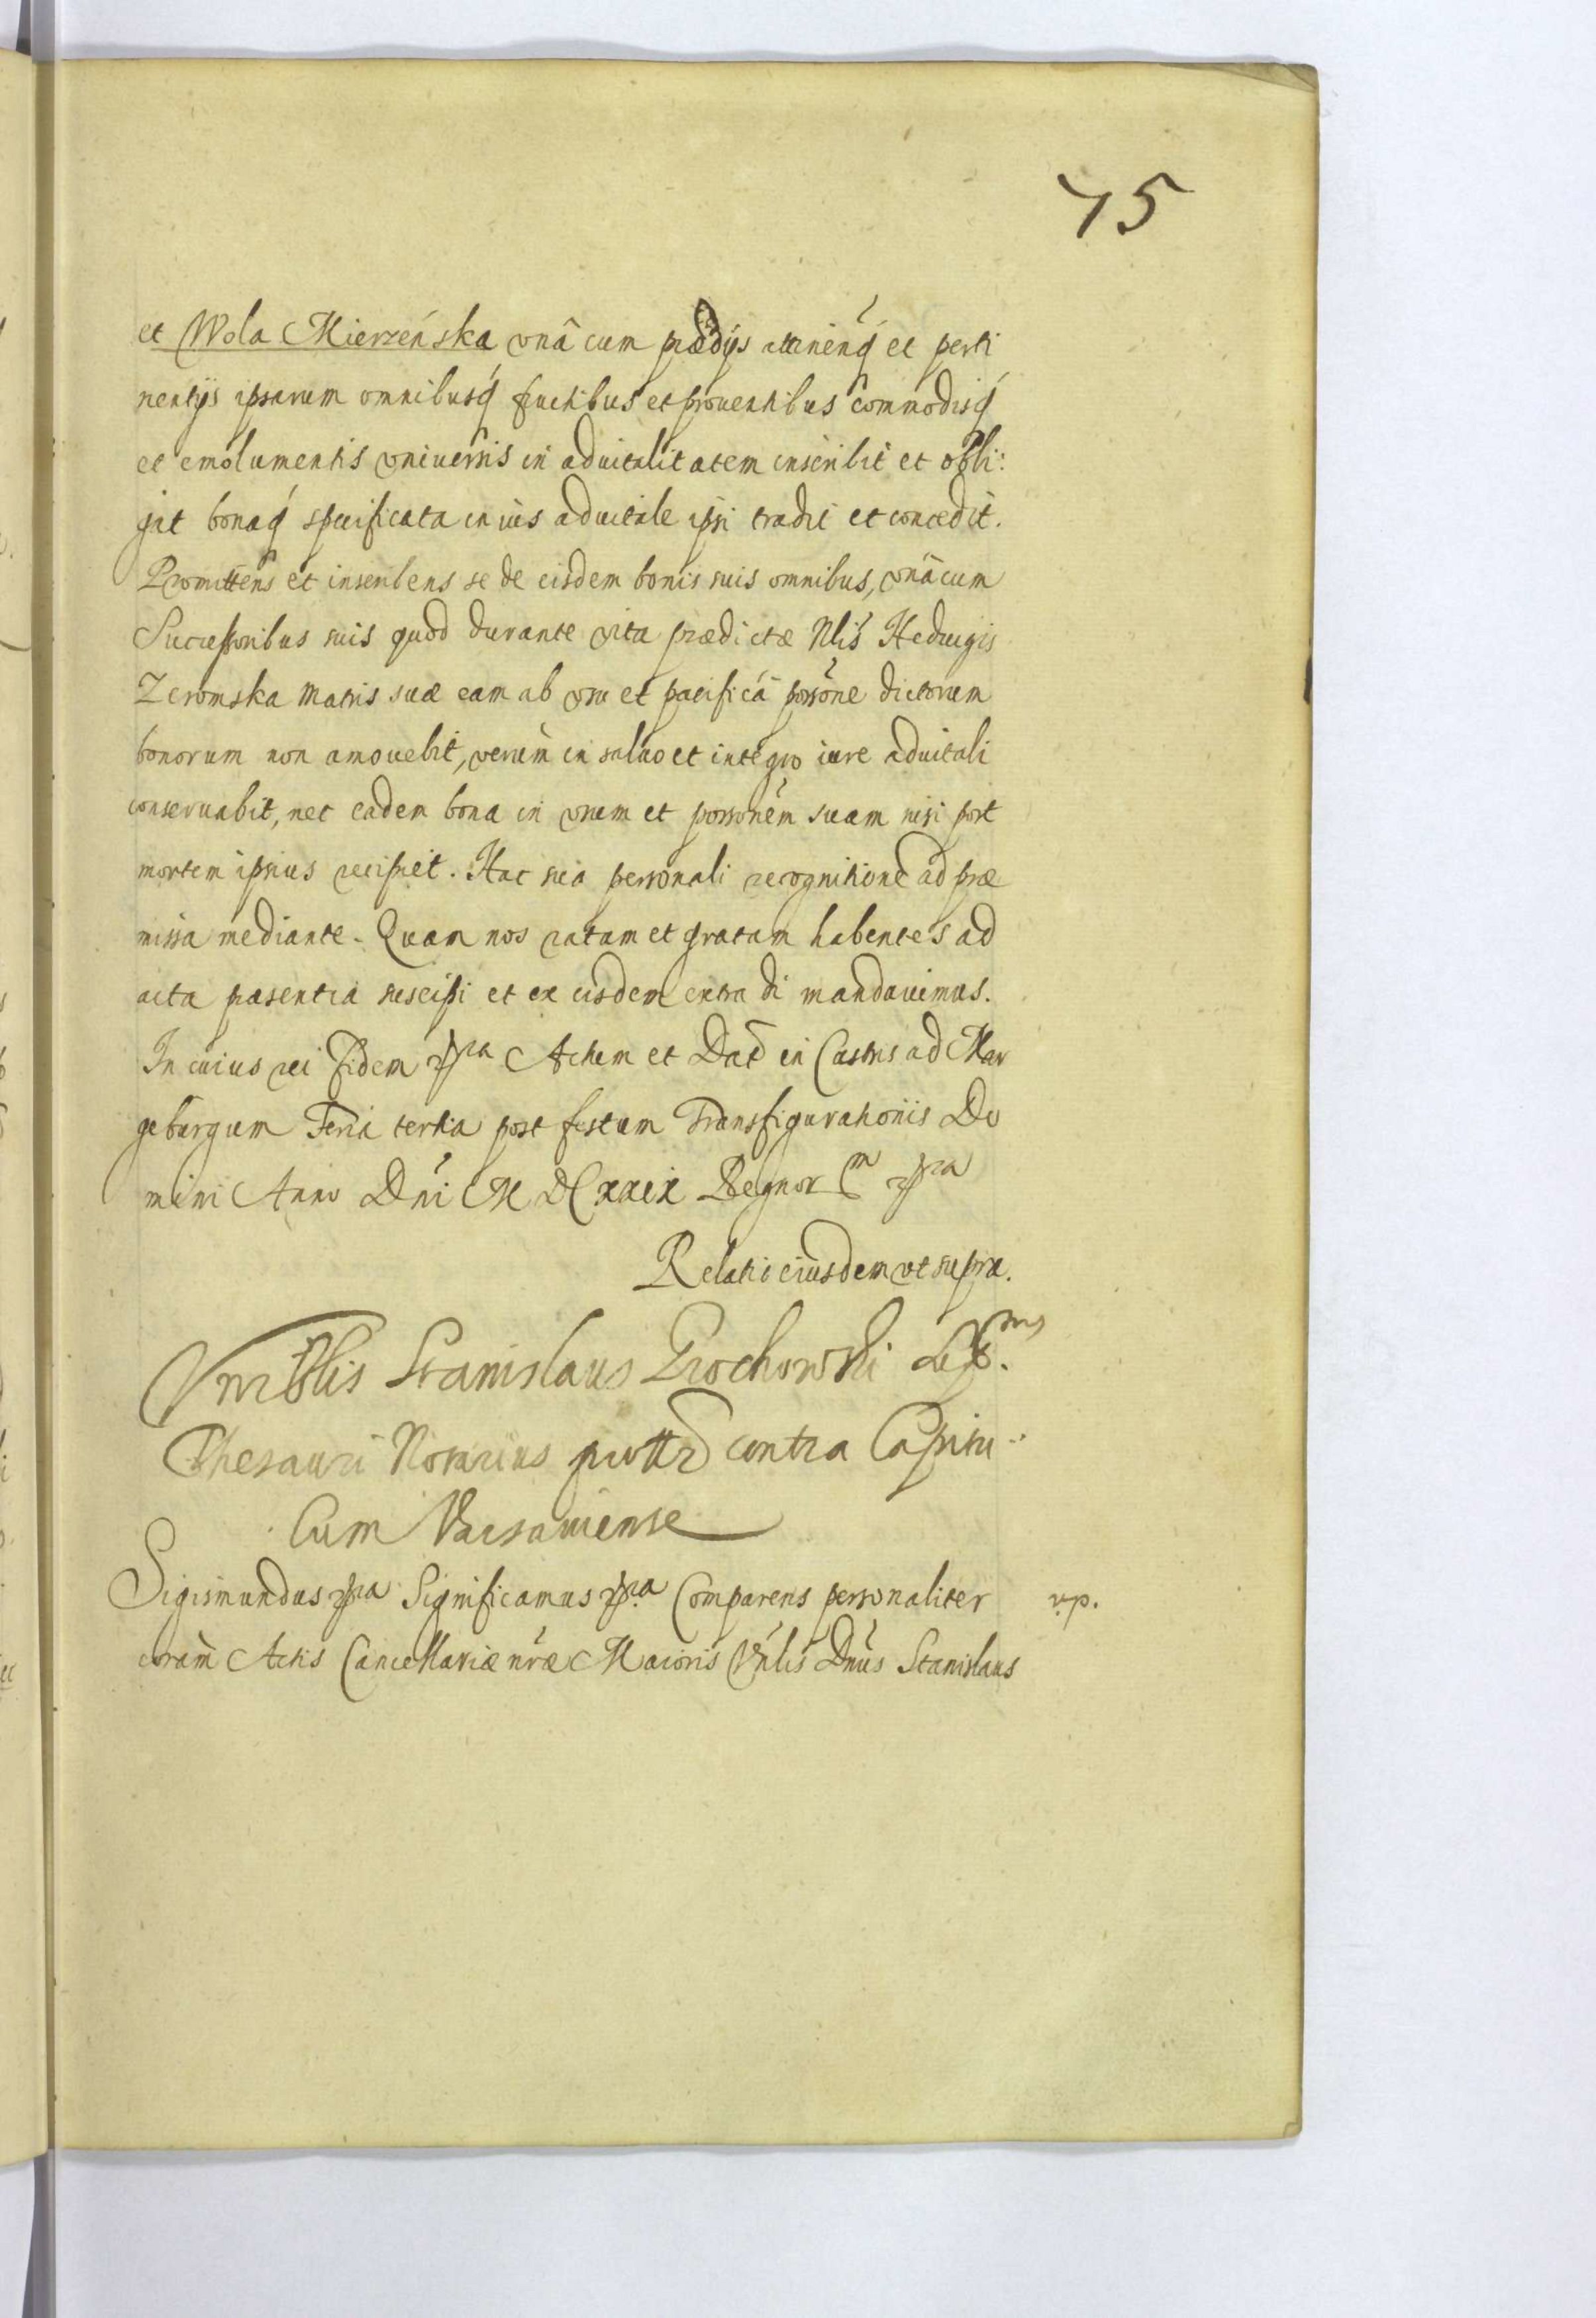 75
et Wola Mierzeńska vnâ cum prædijs attinen̄q́ et perti
nentijs ipsarum omnibusq́ fructibus et prouentibus commodisq́
et emolumentis vniuersis in aduitalitatem inscribit et obli:
gat bonaq́ specificata in ius aduitale ipsi tradit et concedit.
Promittens et inscribens se de eisdem bonis suis omnibus, vnâcum
Successoribus suis quod durante vita prædictæ Nlis Heduigis
Zeromska Matris suæ eam ab vsu et pacificâ possōne dictorum
bonorum non amouebit, verùm in saluo et integro iure aduitali
conseruabit, nec eadem bona in vsum et possonem̄ suam nisi post
mortem ipsius recipiet. Hac sua personali recognitione ad præ
missa mediante. Quam nos ratam et gratam habentes ad
acta præsentia suscipi et ex eisdem extradi mandauimus.
In cuius rei fidem Actum et Dat̄ in Castris ad Mar
geburgum Feria tertia post festum Transfigurationis Do
mini Anno Dn̄i M DCxxix Regnor
Relatio eiusdem vt supra.
Stanislaus Grochowski
Thesauri Notarius contra Capitu
lum Varsauiense
Sigismundus Significamus Comparens personaliter
v.p.
coram Actis Cancellariæ nr̄æ Maioris Vn̄lis Dn̄us Stanislaus